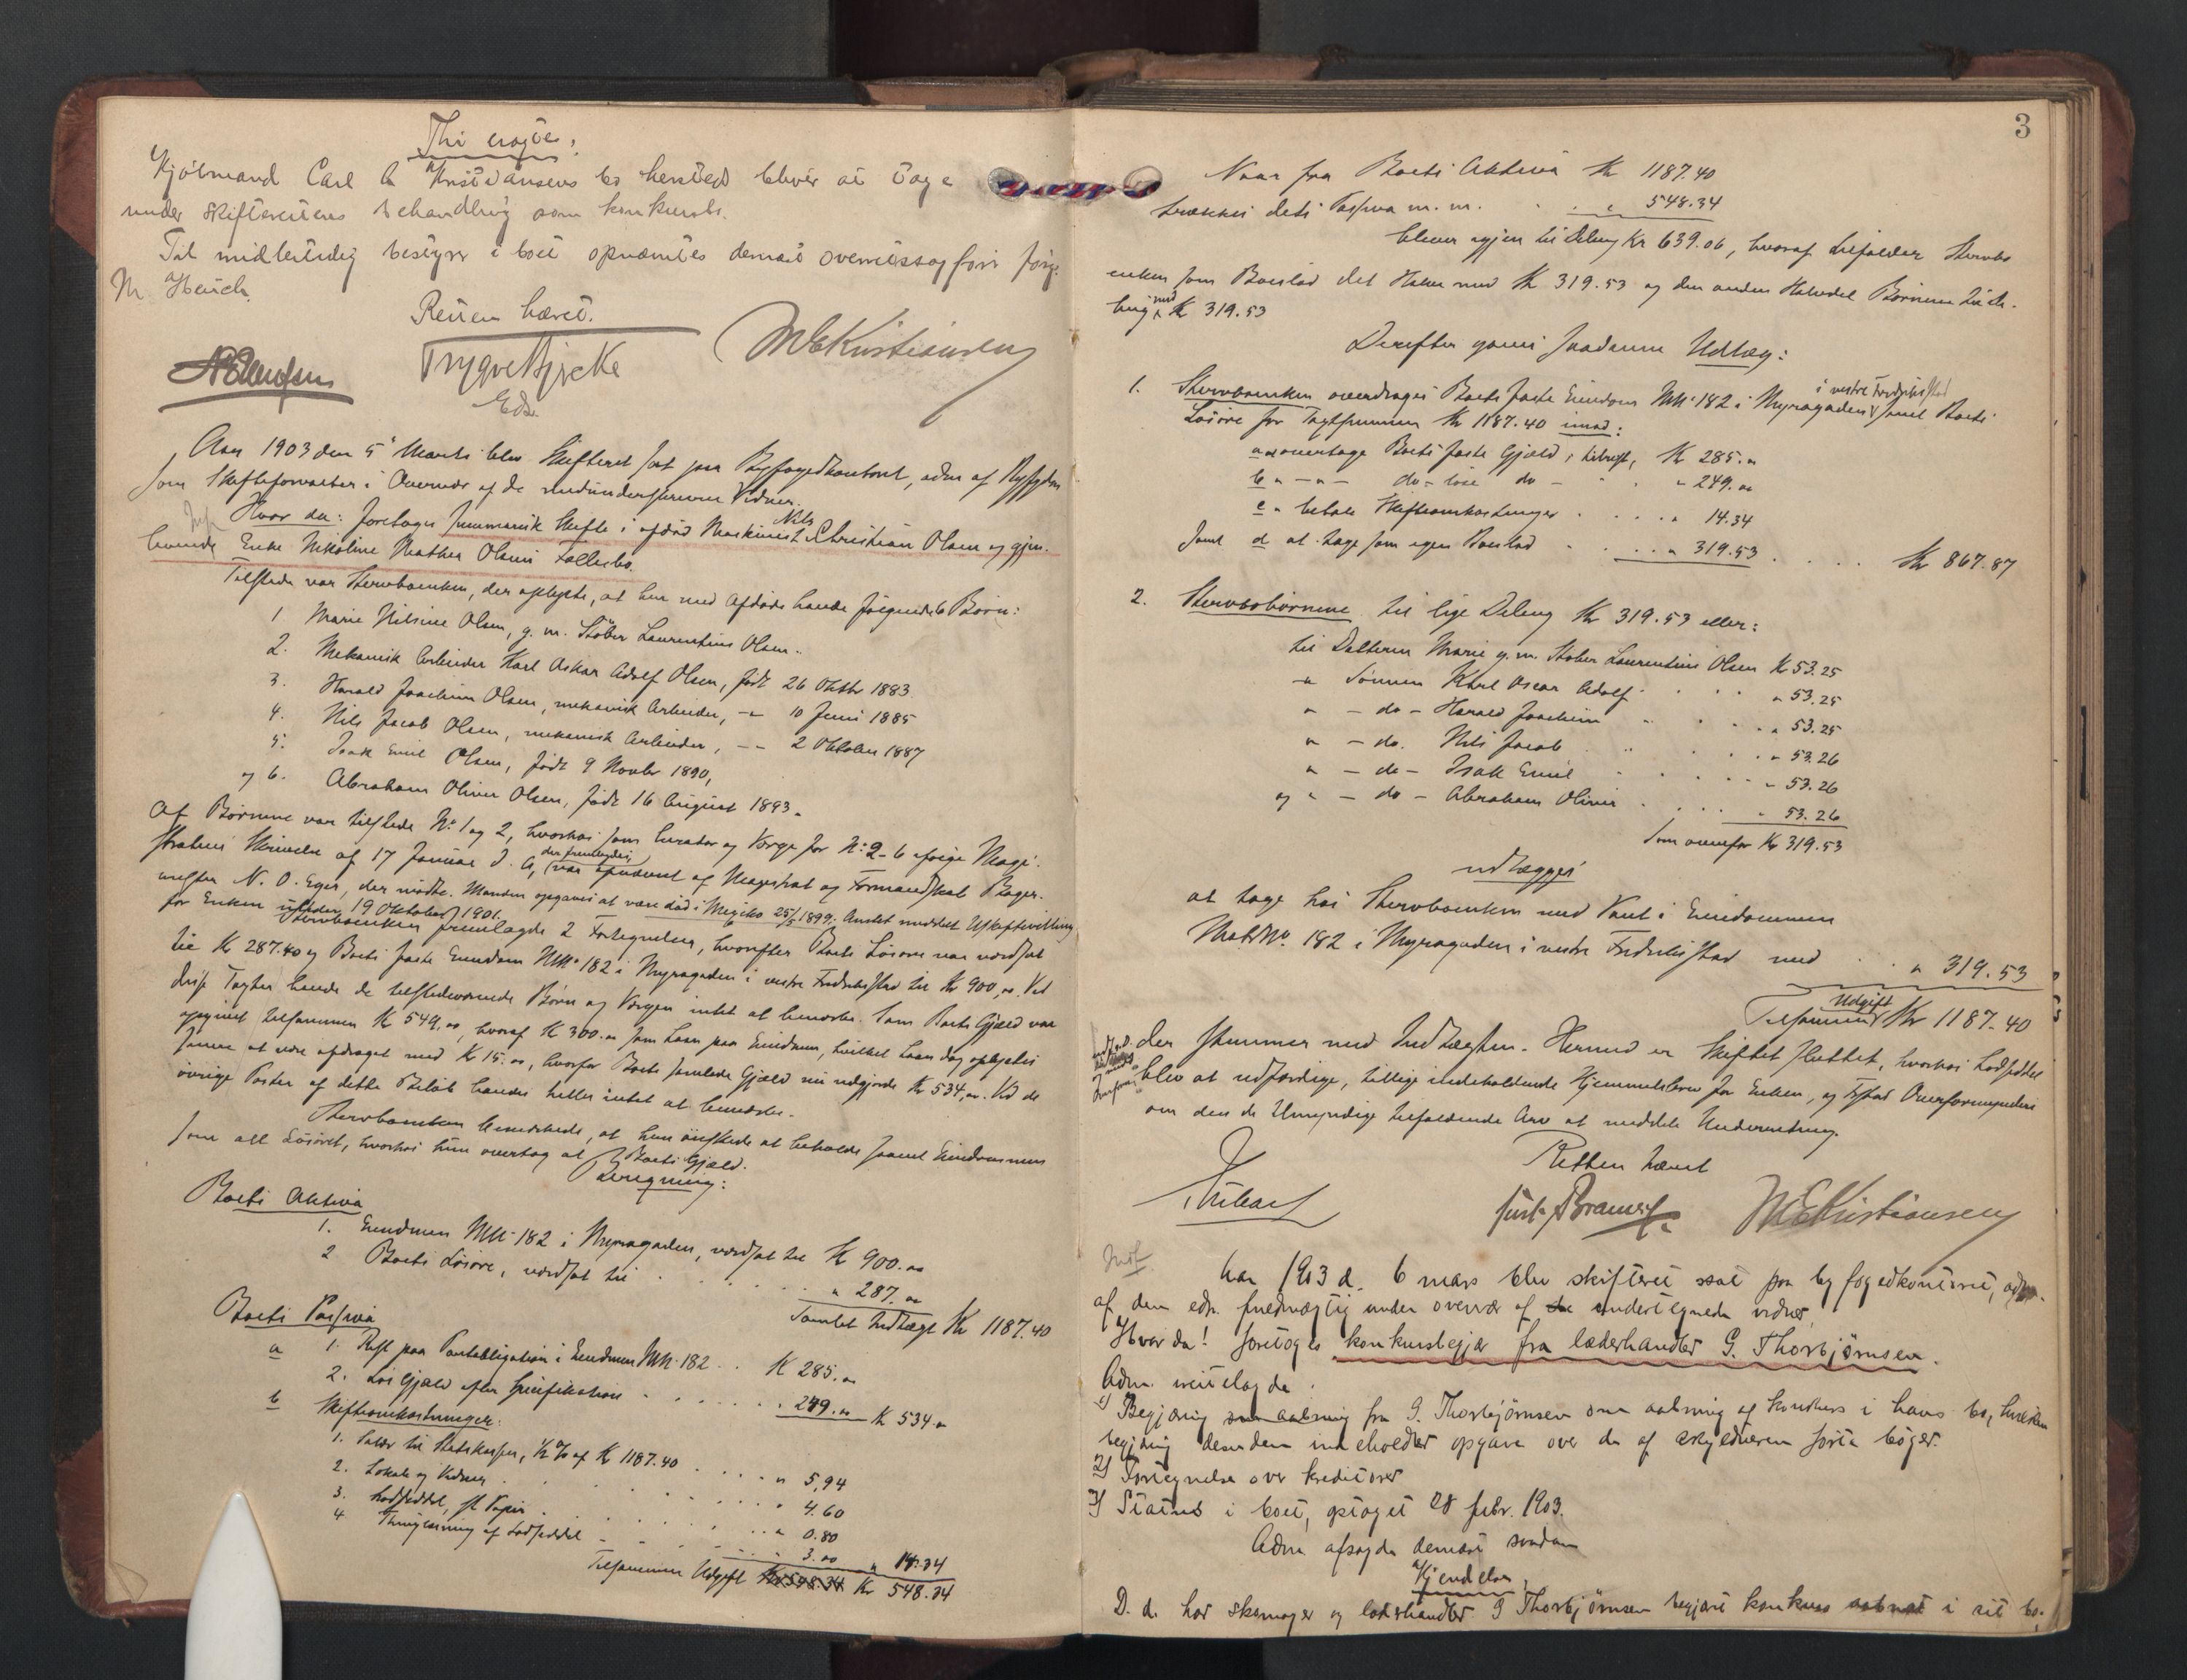 Thi eragtes:
Kjøbmand Carl A Kristiansens bo hersteds bliver at tage
under skifterettens behandling som konkursbo.
Til midlertidig bestyrer i boet opnævntes dernæst overretssagfører Jørg.
M. Heuch.
Retten hævet.
Trygve Kjycke
Eds.
M E Kristiansen
Aar 1903 den 5 Marts blev Skifteret sat paa Byfogedkontoret, adm af Byfogden
som Skifteforvalter i Overvær af de medunderskrevne Vidner.
Hvor da: foretoges summarisk Skifte i afdød Maskinist Nils Christian Olsen og gjen-
levende Enke Nikoline Mathea Olsens Fællesbo.
Tilstede var Stervboenken, der oplyste, at hun med Afdøde havde følgende 6 Børn:
1 Marie Nilsine Olsen, g. m. Støber Laurentius Olsen.
2. Mekanisk Arbeider Karl Oskar Adolf Olsen, født 26 Oktbr 1883
3. Harald Joachim Olsen, mekanisk Arbeider, -"- 10 Juni 1885
4. Nils Jacob Olsen, mekanisk Arbeider, -"- 2 Oktober 1887
5. Isak Emil Olsen, født 9 Novbr 1890,
og 6. Abraham Oliver Olsen, født 16 August 1893.
Af Børnene var tilstede No 1 og 2, hvorhos som Curator og Værge for No 2-6 ifølge Magi-
stratens Skrivelse af 17 Januar d. A, der fremlagdes, var opnævnt af Magistrat og Formandskab Bager-
mester N. O. Eger, der mødte. Manden opgaves at være død i Mexiko 25/5 1899. Amtet meddelt Uskiftebevilling
for Enken 19 Oktober 1901.
Stervboenken fremlagde 2 Fortegnelser, hvorefter Boets Løsøre var værdsat
til Kr 287.40 og Boets faste Eiendom MNo 182 i Myragaden i vestre Fredrikstad til Kr 900,00. Ved
disse Taxter havde de tilstedeværende Børn og Værgen intet at bemærke. Som Boets Gjæld var
opgivet tilsammen Kr 549,00, hvoraf Kr 300.00 som Laan paa Eiendommen, hvilket Laan dog oplystes
senere at være afdraget med Kr 15.00, hvorfor Boets samlede Gjæld nu udgjorde Kr 534,00. Ved de
øvrige Poster af dette Beløb havdes heller intet at bemærke.
Stervboenken bemærkede, at hun ønskede at beholde saavel Eiendommen
som alt Løsøret, hvorhos hun overtog al Boets Gjæld.
Beregning:
Boets Aktiva
1. Eiendommen MNo 182 i Myragaden, værdsat til Kr 900.00
2 Boets Løsøre, værdsat til " 287.40
Samlet Indtægt Kr 1187.40
Boets Passiva
a 1. Rest paa Pantobligation i Eiendommen MNo 182 Kr 285.00
2. Løs Gjæld efter Specifikation 249.00 Kr 534.00
b Skifteomkostninger:
1. Salær til Statskassen, 1/2 % af Kr 1187.40 " 5,94
2. Lokale og Vidner " 4.60
3. Lodseddel, st. Papir " 0.80
4 Thinglæsning af Lodseddel 3.00 " 14.34
Tilsammen Udgift Kr 548.34 Kr 548.34
3
Naar fra Boets Aktiva Kr 1187.40
trækkes dets Passiva m. m. " 548.34
bliver igjen til Deling Kr 639.06, hvoraf tilfalder Stervbo-
enken som Boeslod det Halve med Kr 319.53 og den anden Halvdel Børnene til De-
ling med Kr 319.53
Derefter gjøres saadanne Udlæg:
1. Stervboenken overdrages Boets faste Eiendom MNo 182 i Myragaden i vestre Fredrikstad samt Boets
Løsøre for Taxtsummen Kr 1187.40 imod:
a at overtage Boets faste Gjæld, tilrest, Kr 285.00
b " -"- do - løse do - " 249.00
c " betale Skifteomkostninger " 14.34
samt d at tage som egen Boeslod " 319.53 Kr 867.87
2. Stervbobørnene til lige Deling Kr 319.53 eller:
til Datteren Marie g. m. Støber Laurentius Olsen Kr 53.25
" Sønnen Karl Oscar Adolf " 53.25
" - do - Harald Joachim " 53.25
" - do. Nils Jacob " 53.26
" - do - Isak Emil " 53.26
og " - do - Abraham Oliver " 53.26
Som ovenfor Kr 319.53
udlægges
at tage hos Stervboenken med Pant i Eiendommen
MatrNo. 182 i Myragaden i vestre Fredrikstad med " 319.53
Tilsammen Udgift Kr 1187.40
der stemmer med Indtægten. Hermed er Skiftet sluttet, hvorhos Lodseddel
blev at udfærdige, tillige indeholdende Hjemmelsbrev for Enken, og Fstad Overformynderi
om den de Umyndige tilfaldende Arv at meddele Underretning.
Retten hævet
M E Kristiansen
Indf.
Aar 1903 d. 6 mars blev skifteret sat paa byfogedkontoret, adm.
af den eds. fuldmægtig under overvær af de undertegnede vidner.
Hvor da! foretoges konkursbegjær fra læderhandler G. Thorbjørnsen.
Adm. irettelagde:
1) Begjæring om aabning fra G. Thorbjørnsen om aabning af konkurs i hans bo, hvilken
begjæring desuden indeholder opgave over de af skyldneren førte bøger.
2) Fortegnelse over kreditorer
3) Status i boet, optaget 28 febr. 1903.
Adm afsagde dernæst saadan
Kjendelse,
D. d. har skomager og læderhandler G Thorbjørnsen begjært konkurs aabnet i sit bo.